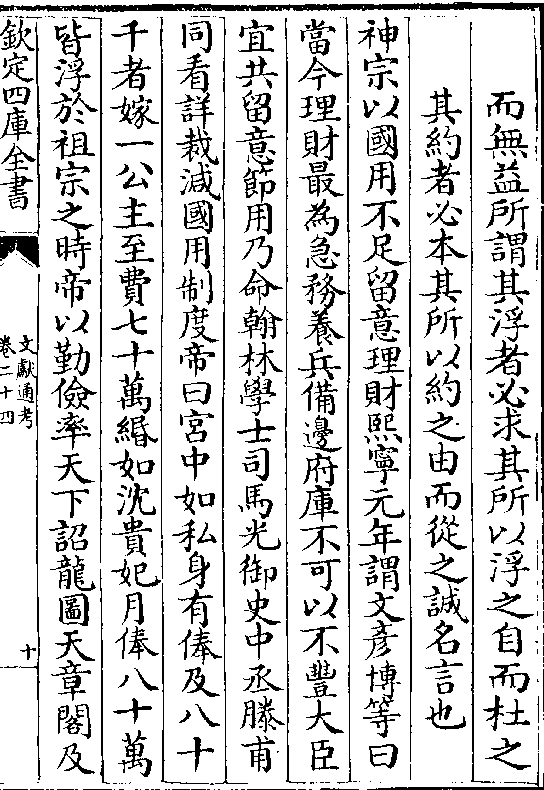 而無益所謂其浮者必求其所以浮之自而杜之
其約者必本其所以約之由而從之誠名言也
神宗以國用不足留意理財熙寧元年謂文彥博等曰
當今理財最為急務養兵備邊府庫不可以不豐大臣
宜共留意節用乃命翰林學士司馬光御史中丞滕甫
同看詳裁減國用制度帝曰宮中如私身有俸及八十
千者嫁一公主至費七十萬緡如沈貴妃月俸八十萬
皆浮於祖宗之時帝以勤儉率天下詔龍圖天章閣及
欽定四庫全書
文獻通考
卷二十四
十